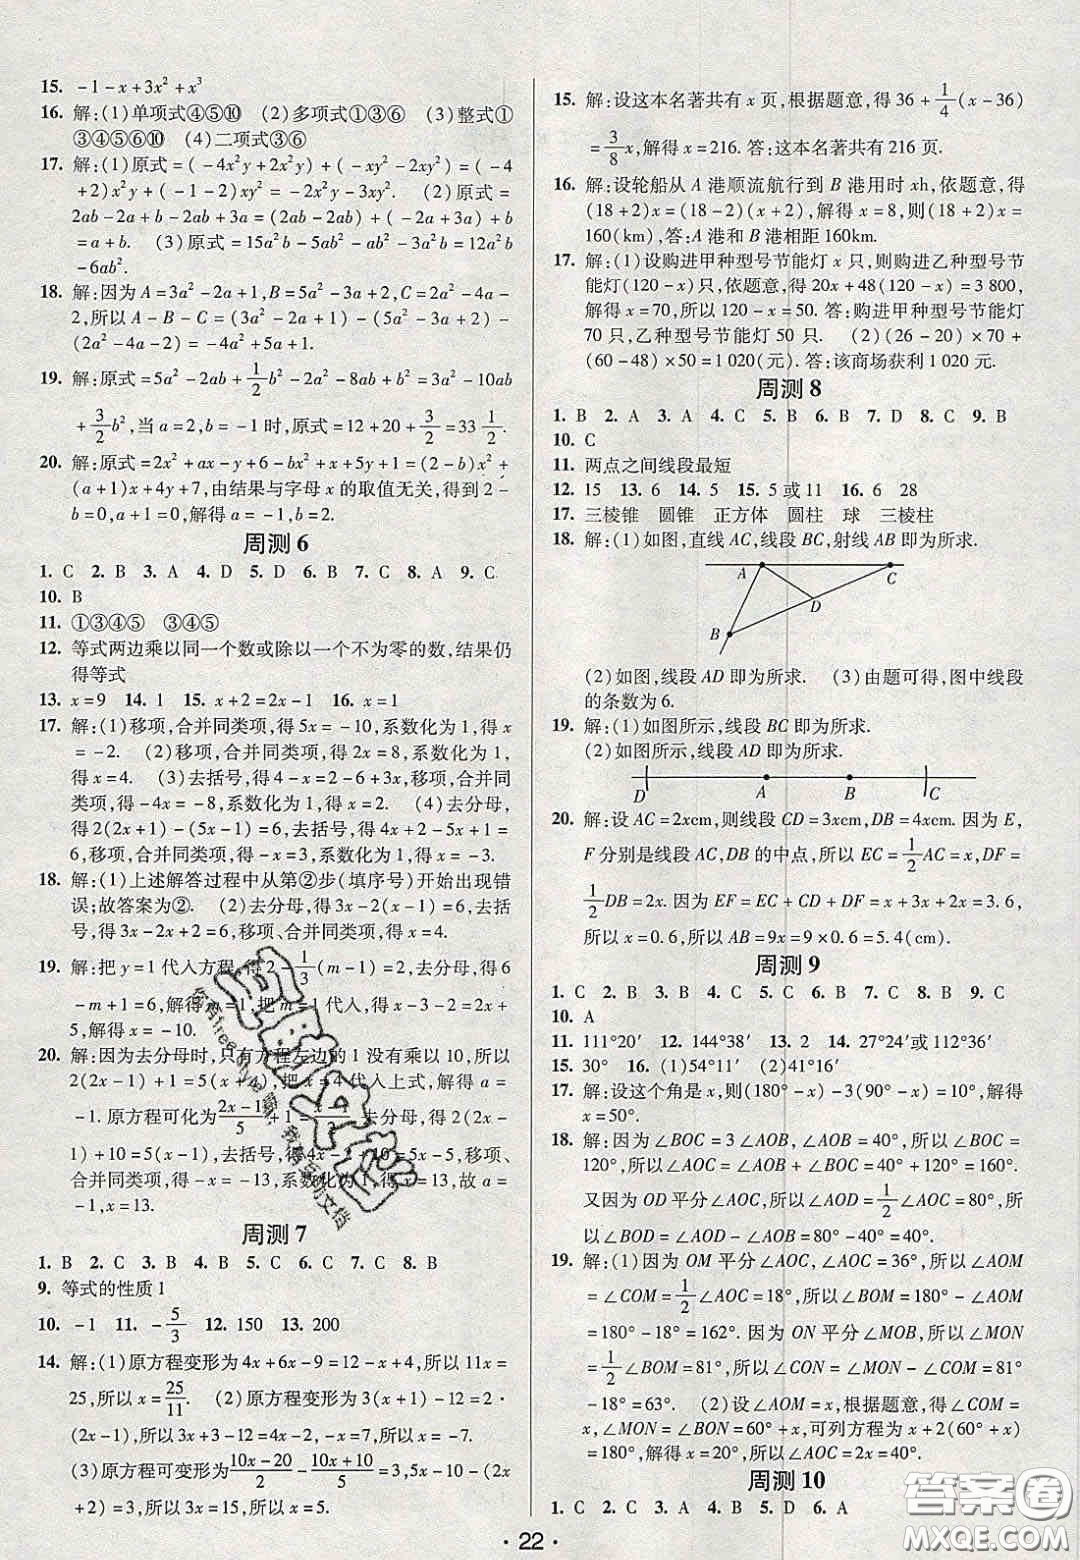 15. －1－x＋3x²＋x³
16. 解:(1)单项式④⑤⑩ (2)多项式①③⑥ (3)整式①
③④⑤⑥⑩ (4)二项式③⑥
17. 解:(1)原式＝(－4x²y＋2x²y)＋(－xy²－2xy²)＝(－4
＋2)x²y＋(－1－2)xy²＝－2x²y－3xy². (2)原式＝
2ab－2a＋b－2ab＋3a＝(2ab－2ab)＋(－2a＋3a)＋b
＝a＋b. (3)原式＝15a²b－5ab²－ab²－3a²b＝12a²b
－6ab².
18. 解:因为A＝3a²－2a＋1,B＝5a＋2,C＝2a²－4a－
2,所以A－B－C＝(3a²－2a＋1)－(5a＋2)－
(2a²－4a－2)＝a²－4a＋5a＋1.
19. 解:原式＝5a²－2ab＋1/2b²－2a²－8ab＋b²＝3a²－10ab
＋3/2b²,当a＝2,b＝－1时,原式＝12＋20＋3/2＝33 1/2.
20. 解:原式＝2x²＋ax－y＋6－bx²＋x＋5y＋1＝(2－b)x²＋
(a＋1)x＋4y＋7,由结果与字母x的取值无关,得到2－
b＝0,a＋1＝0,解得a＝－1,b＝2.
周测6
1. C 2. B 3. A 4. D 5. D 6. B 7. C 8. A 9. C
10. B
11. ①③④⑤ ③④⑤
12. 等式两边乘以同一个数或除以一个不为零的数,结果仍
得等式
13. x＝9 14. 1 15. x＋2＝2x－1 16. x＝1
17. 解:(1)移项,合并同类项,得5x＝－10,系数化为1,得x
＝－2. (2)移项,合并同类项,得2x＝8,系数化为1,
得x＝4. (3)去括号,得4－x＝2－6＋3x,移项,合并同
类项,得－4x＝－8,系数化为1,得x＝2. (4)去分母,
得2(2x＋1)－(5x－1)＝6,去括号,得4x＋2－5x＋1＝
6,移项,合并同类项,得－x＝3,系数化为1,得x＝－3.
18. 解:(1)上述解答过程中从第②步(填序号)开始出现错
误;故答案为②. (2)去分母,得3x－2(x－1)＝6,去括
号,得3x－2x＋2＝6,移项、合并同类项,得x＝4.
19. 解:把y＝1代入方程,得2－1/3(m－1)＝2,去分母,得6
－m＋1＝6,解得m＝1,把m＝1代入,得x－3－2＝2x＋
5,解得x＝－10.
20. 解:因为去分母时,只有方程左边的1没有乘以10,所以
2(2x－1)＋1＝5(x＋a),把x＝4代入上式,解得a＝
－1.原方程可化为2x－1/5＋1＝x－1/2,去分母,得2(2x
－1)＋10＝5(x－1),去括号,得4x－2＋10＝5x－5,移项、
合并同类项,得－x＝－13,系数化为1,得x＝13,故a＝
－1,x＝13.
周测7
1. B 2. C 3. B 4. A 5. C 6. C 7. C 8. B
9. 等式的性质1
10. －1 11. －5/3 12. 150 13. 200
14. 解:(1)原方程变形为4x＋6x－9＝12－x＋4,所以11x＝
25,所以x＝25/11. (2)原方程变形为3(x＋1)－12＝2·
(2x－1),所以3x－9＝4x－2,－x＝7,所以x＝－7.
(3)原方程可变形为10x－20/2－10x＋10/5＝3,5x－10－(2x
＋2)＝3,所以3x＝15,所以x＝5.
15. 解:设这本名著共有x页,根据题意,得36＋1/4(x－36)
＝3/8x,解得x＝216.答:这本名著共有216页.
16. 解:设轮船从A港顺流航行到B港用时xh,依题意,得
(18＋2)x＝(18－2)(x＋2),解得x＝8,则(18＋2)x＝
160(km),答:A港和B港相距160km.
17. 解:(1)设购进甲种型号节能灯x只,则购进乙种型号节
能灯(120－x)只,依题意,得20x＋48(120－x)＝3 800,
解得x＝70,所以120－x＝50.答:购进甲种型号节能灯
70只,乙种型号节能灯50只. (2)(26－20)×70＋
(60－48)×50＝1 020(元).答:该商场获利1 020元.
周测8
1. B 2. A 3. A 4. C 5. B 6. B 7. D 8. C 9. B
10. C
11. 两点之间线段最短
12. 15 13. 6 14. 5 15. 5或11 16. 6 28
17. 三棱锥 圆锥 正方体 圆柱 球 三棱柱
18. 解:(1)如图,直线AC,线段BC,射线AB即为所求.
A
C
D
B
(2)如图,线段AD即为所求. (3)由题可得,图中线段
的条数为6.
19. 解:(1)如图所示,线段BC即为所求.
(2)如图所示,线段AD即为所求.
D A B C
20. 解:设AC＝2xcm,则线段CD＝3xcm,DB＝4xcm.因为E,
F分别是线段AC,DB的中点,所以EC＝1/2AC＝x,DF＝
1/2DB＝2x.因为EF＝EC＋CD＋DF＝x＋3x＋2x＝3.6,
所以x＝0.6,所以AB＝9x＝9×0.6＝5.4(cm).
周测9
1. C 2. B 3. B 4. C 5. C 6. B 7. C 8. B 9. C
10. A
11. 111°20′ 12. 144°38′ 13. 2 14. 27°24′或112°36′
15. 30° 16. (1)54°11′ (2)41°16′
17. 解:设这个角是x,则(180°－x)－3(90°－x)＝10°,解得
x＝50°.
18. 解:因为∠BOC＝3∠AOB,∠AOB＝40°,所以∠BOC＝
120°,所以∠AOC＝∠AOB＋∠BOC＝40°＋120°＝160°.
又因为OD平分∠AOC,所以∠AOD＝1/2∠AOC＝80°,所
以∠BOD＝∠AOD－∠AOB＝80°－40°＝40°.
19. 解:(1)因为OM平分∠AOC,∠AOC＝36°,所以∠AOM
＝∠COM＝1/2∠AOC＝18°,所以∠BOM＝180°－∠AOM
＝180°－18°＝162°.因为ON平分∠MOB,所以∠MON＝
1/2∠BOM＝81°,所以∠CON＝∠MON－∠COM＝81°
－18°＝63°. (2)设∠AOM＝x,根据题意,得∠COM＝
x,∠MON＝∠BON＝60°＋x,可列方程为x＋2(60°＋x)
＝180°,解得x＝20°,所以∠AOC＝2x＝40°.
周测10
1. C 2. C 3. A 4. B 5. D 6. A
· 22 ·
答案圈
MXQE.COM